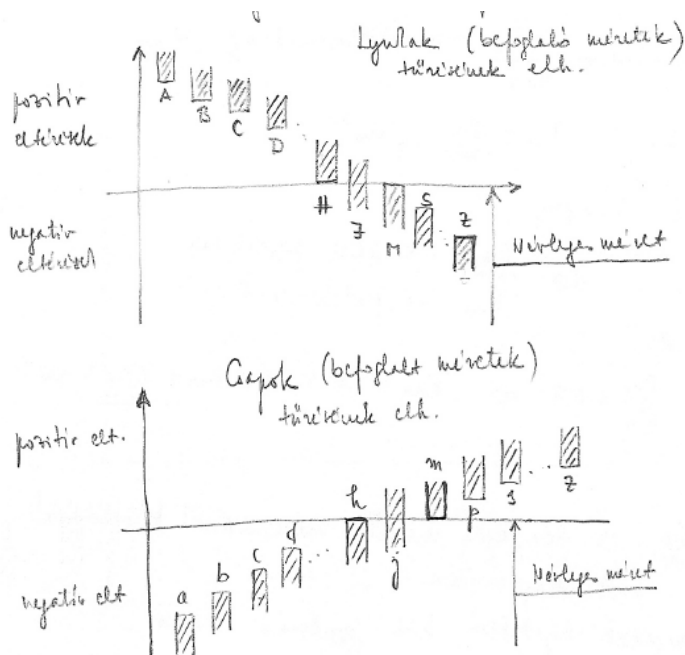 Lyukak (befoglaló méretek)
tűrésének elh.
pozitív
eltérések
A
B
C
D
H
J
M
S
Z
negatív
eltérések
Névleges méret
Csapok (befoglalt méretek)
tűrésének elh.
pozitív elt.
m
h
p
s
z
j
d
c
b
a
negatív elt
Névleges méret